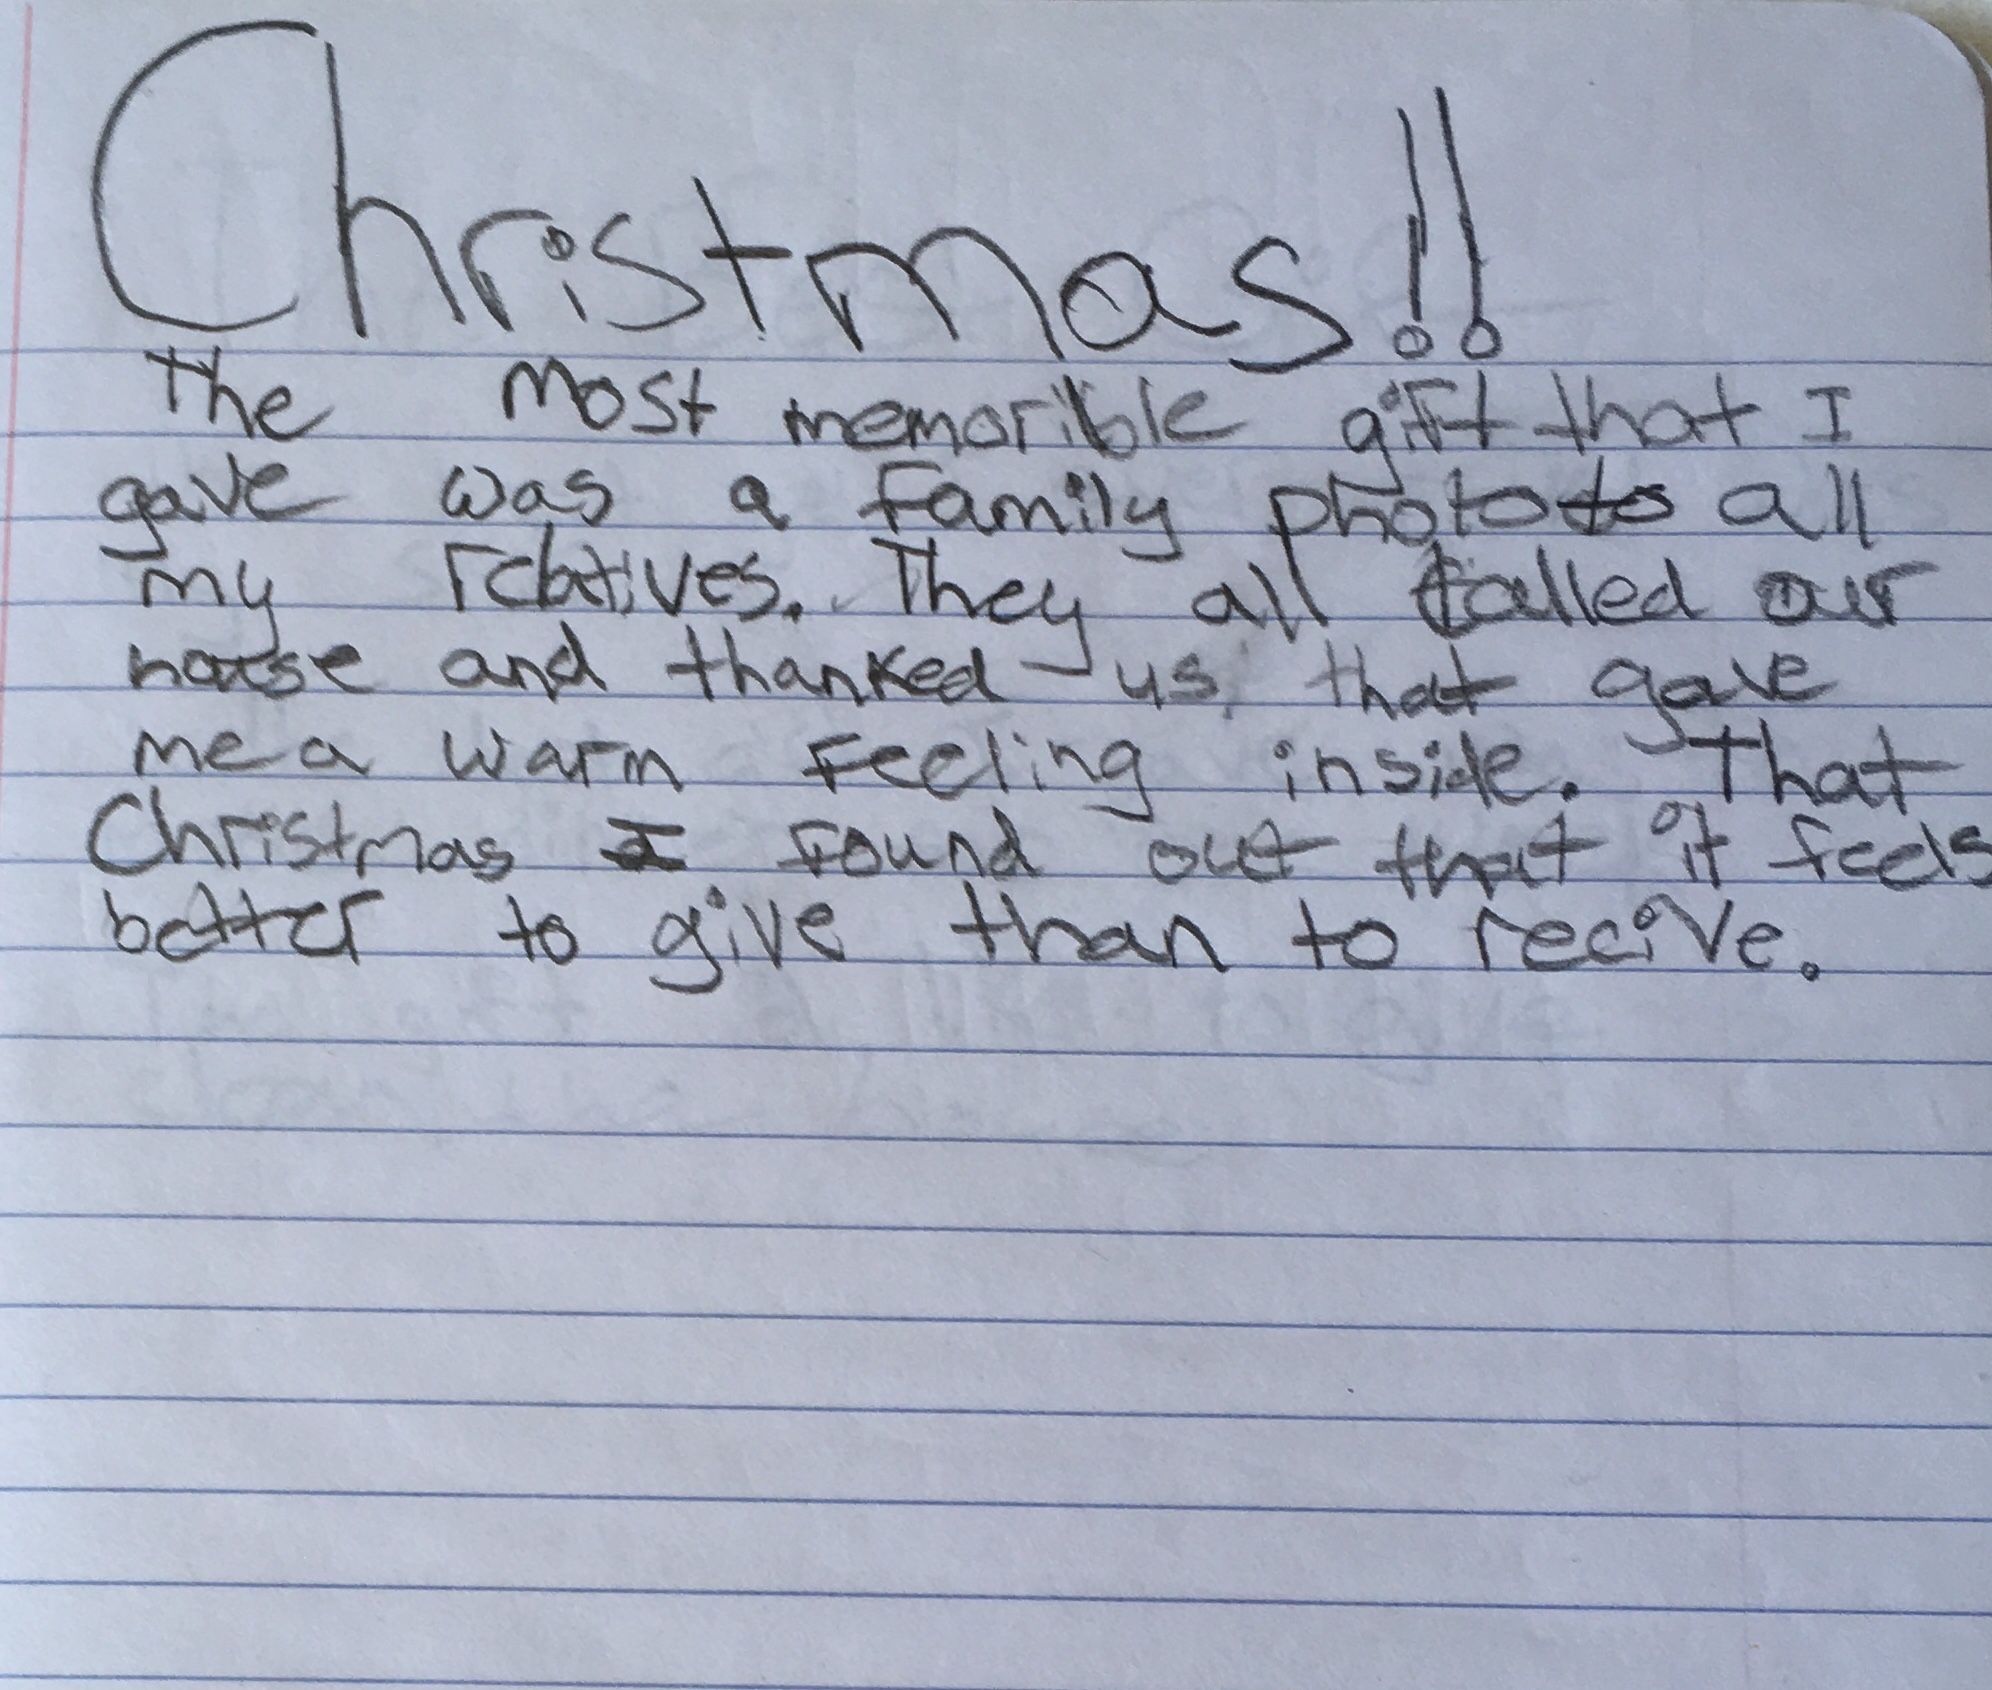 Christmas!!
The most memorible gift that I
gave was a family photo to all
my relatives. They all called our
house and thanked us, that gave
me a warm feeling inside. That
Christmas I found out that it feels
better to give than to recive.